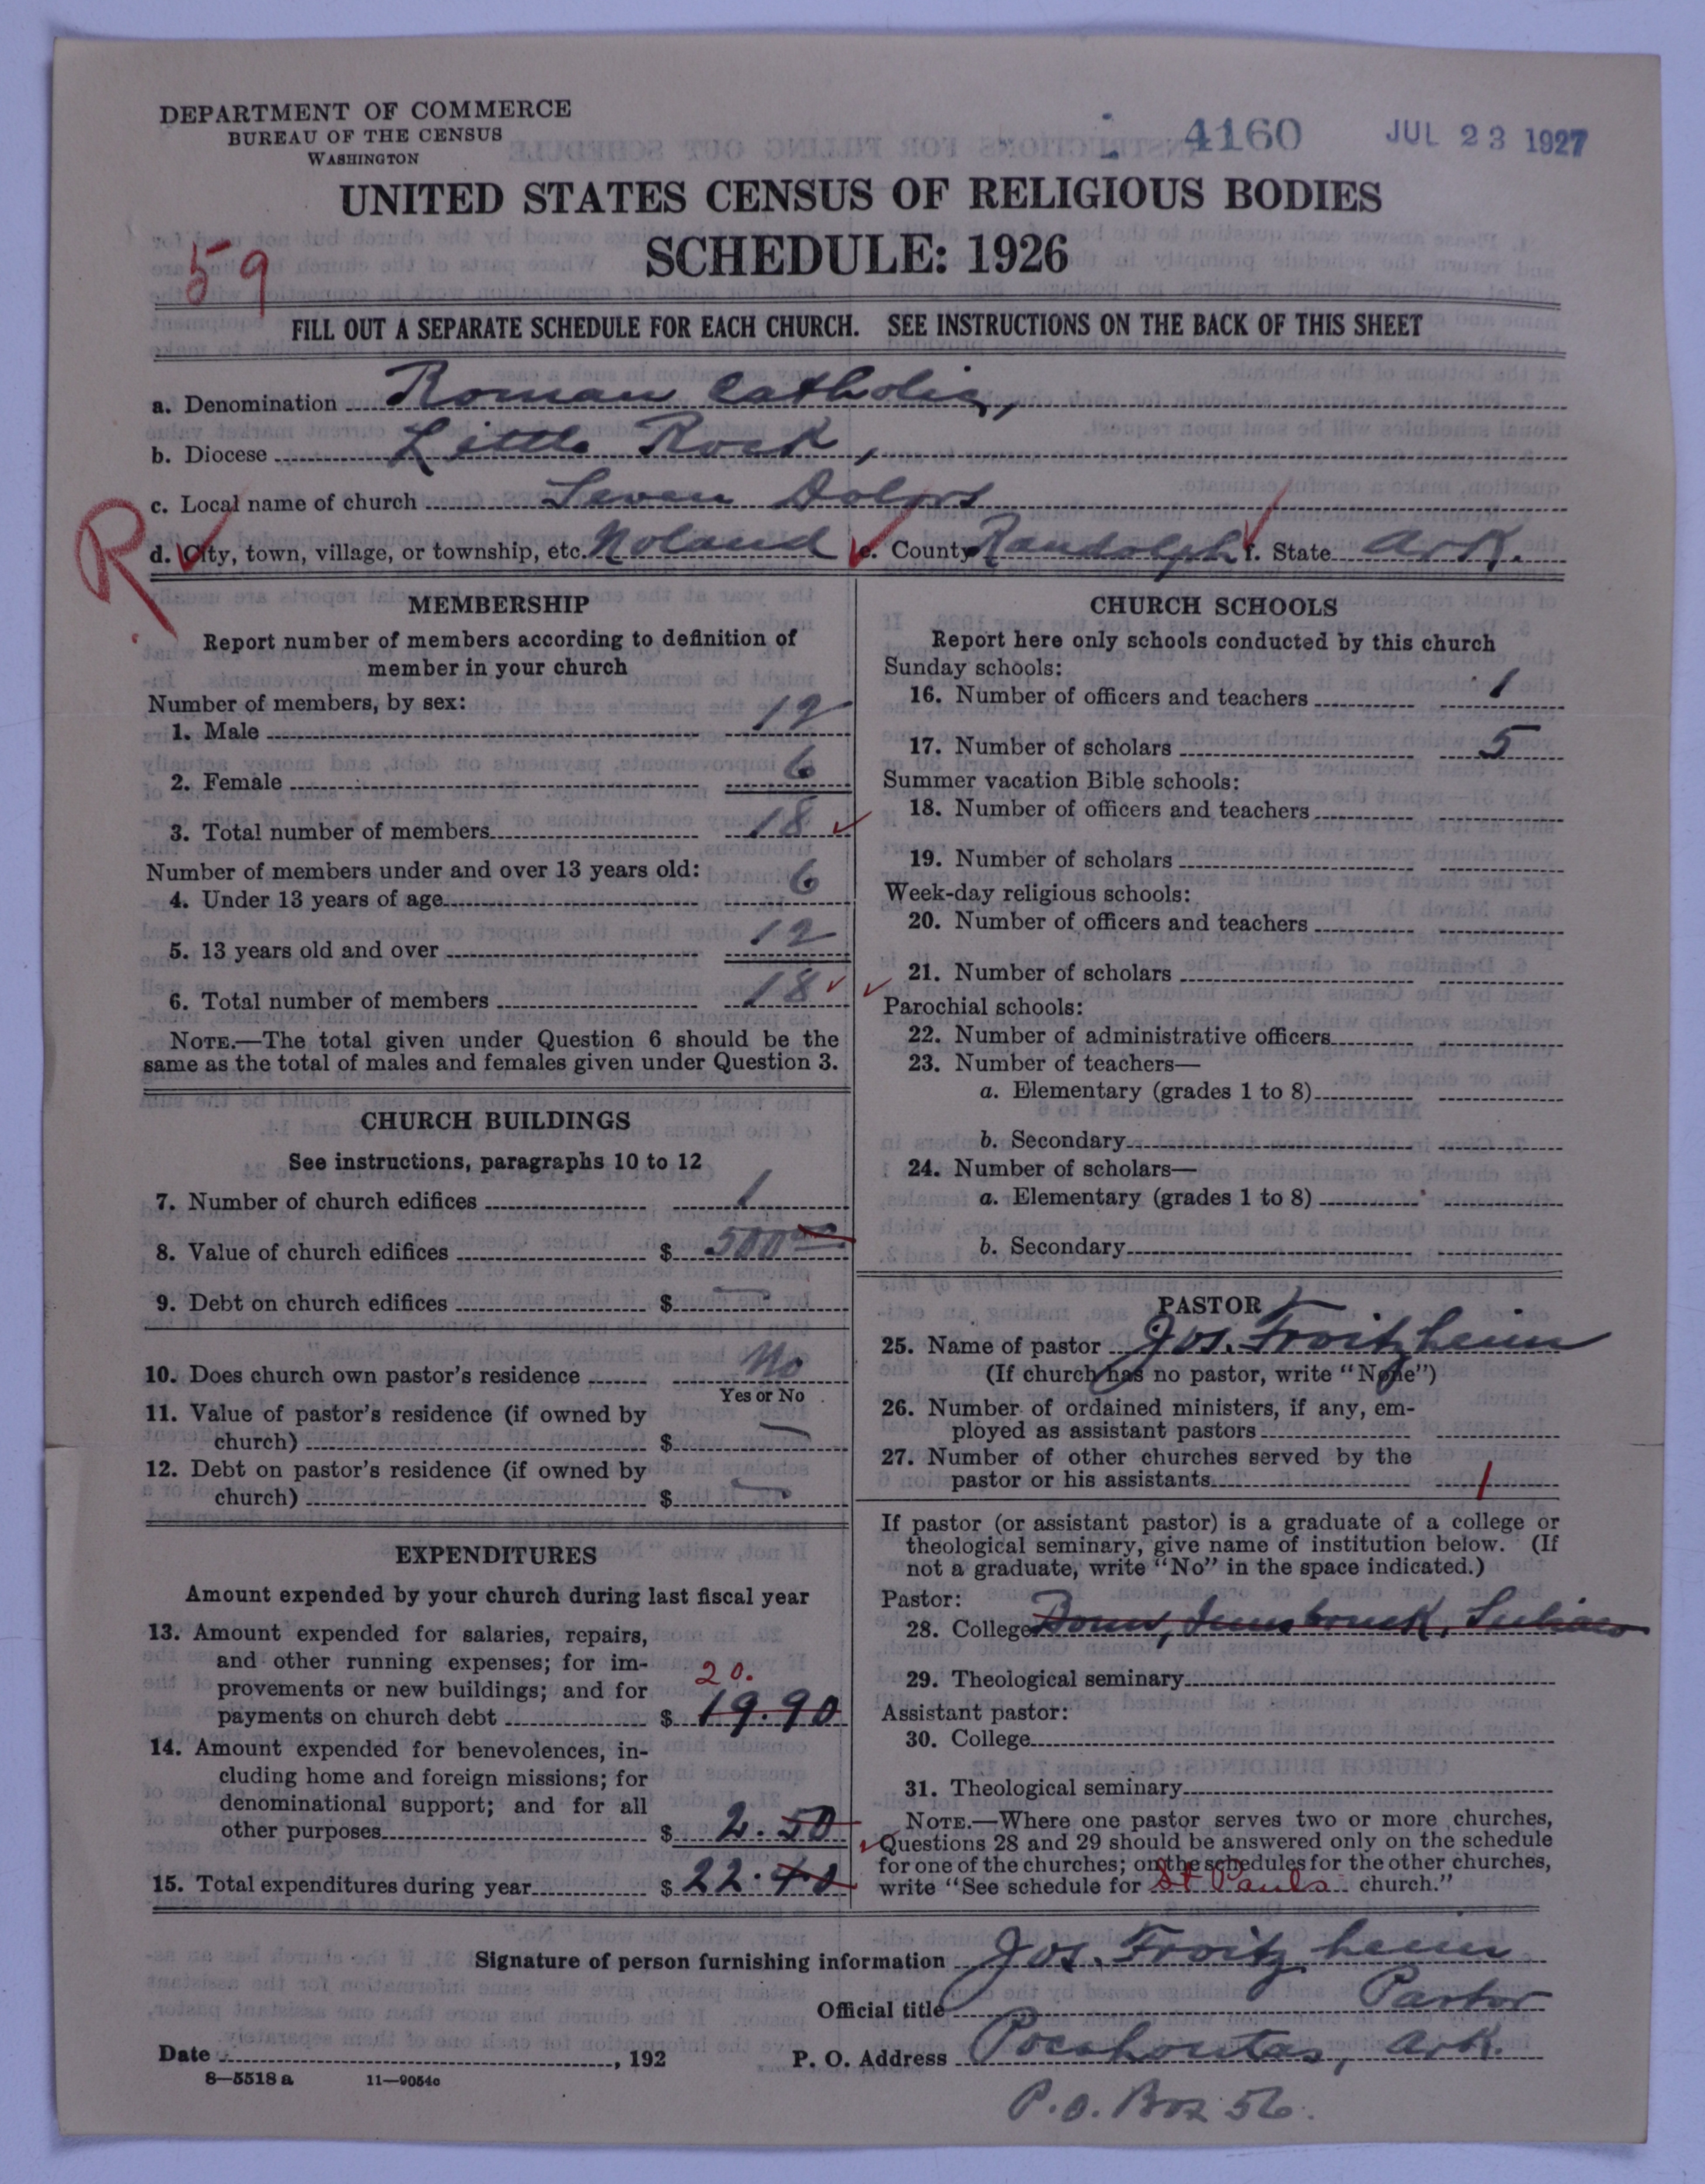 DEPARTMENT OF COMMERCE
BUREAU OF THE CENSUS
WASHINGTON
4160 JUL 23 1927
UNITED STATES CENSUS OF RELIGIOUS BODIES
SCHEDULE: 1926
59
FILL OUT A SEPARATE SCHEDULE FOR EACH CHURCH. SEE INSTRUCTIONS ON THE BACK OF THIS SHEET
a. Denomination Roman Catholic,
b. Diocese Little Rock,
c. Local name of church Seven Dolors
R
d. City, town, village, or township, etc. Noland e. County Randolph f. State Ark.
MEMBERSHIP
Report number of members according to definition of
member in your church
Number of members, by sex:
1. Male 12
2. Female 6
3. Total number of members 18
Number of members under and over 13 years old:
4. Under 13 years of age 6
5. 13 years old and over 12
6. Total number of members 18
NOTE.—The total given under Question 6 should be the
same as the total of males and females given under Question 3.
CHURCH BUILDINGS
See instructions, paragraphs 10 to 12
7. Number of church edifices 1
8. Value of church edifices $ 500 00
9. Debt on church edifices $ —
10. Does church own pastor's residence No
Yes or No
11. Value of pastor's residence (if owned by
church) $ —
12. Debt on pastor's residence (if owned by
church) $ —
EXPENDITURES
Amount expended by your church during last fiscal year
13. Amount expended for salaries, repairs,
and other running expenses; for im-
provements or new buildings; and for
20.
payments on church debt $ 19.90
14. Amount expended for benevolences, in-
cluding home and foreign missions; for
denominational support; and for all
other purposes $ 2.50
15. Total expenditures during year $ 22.40
CHURCH SCHOOLS
Report here only schools conducted by this church
Sunday schools:
16. Number of officers and teachers 1
17. Number of scholars 5
Summer vacation Bible schools:
18. Number of officers and teachers
19. Number of scholars
Week-day religious schools:
20. Number of officers and teachers
21. Number of scholars
Parochial schools:
22. Number of administrative officers
23. Number of teachers—
a. Elementary (grades 1 to 8)
b. Secondary
24. Number of scholars—
a. Elementary (grades 1 to 8)
b. Secondary
PASTOR
25. Name of pastor Jos. Froitzheim
(If church has no pastor, write "None")
26. Number of ordained ministers, if any, em-
ployed as assistant pastors
27. Number of other churches served by the
pastor or his assistants 1
If pastor (or assistant pastor) is a graduate of a college or
theological seminary, give name of institution below. (If
not a graduate, write "No" in the space indicated.)
Pastor:
28. College
29. Theological seminary
Assistant pastor:
30. College
31. Theological seminary
NOTE.—Where one pastor serves two or more churches,
Questions 28 and 29 should be answered only on the schedule
for one of the churches; on the schedules for the other churches,
write "See schedule for St Pauls church."
Signature of person furnishing information Jos. Froitzheim
Official title Pastor
Date , 192 P. O. Address Pocahontas, Ark.
8—5518a 11—9054c
P.O. Box 56.